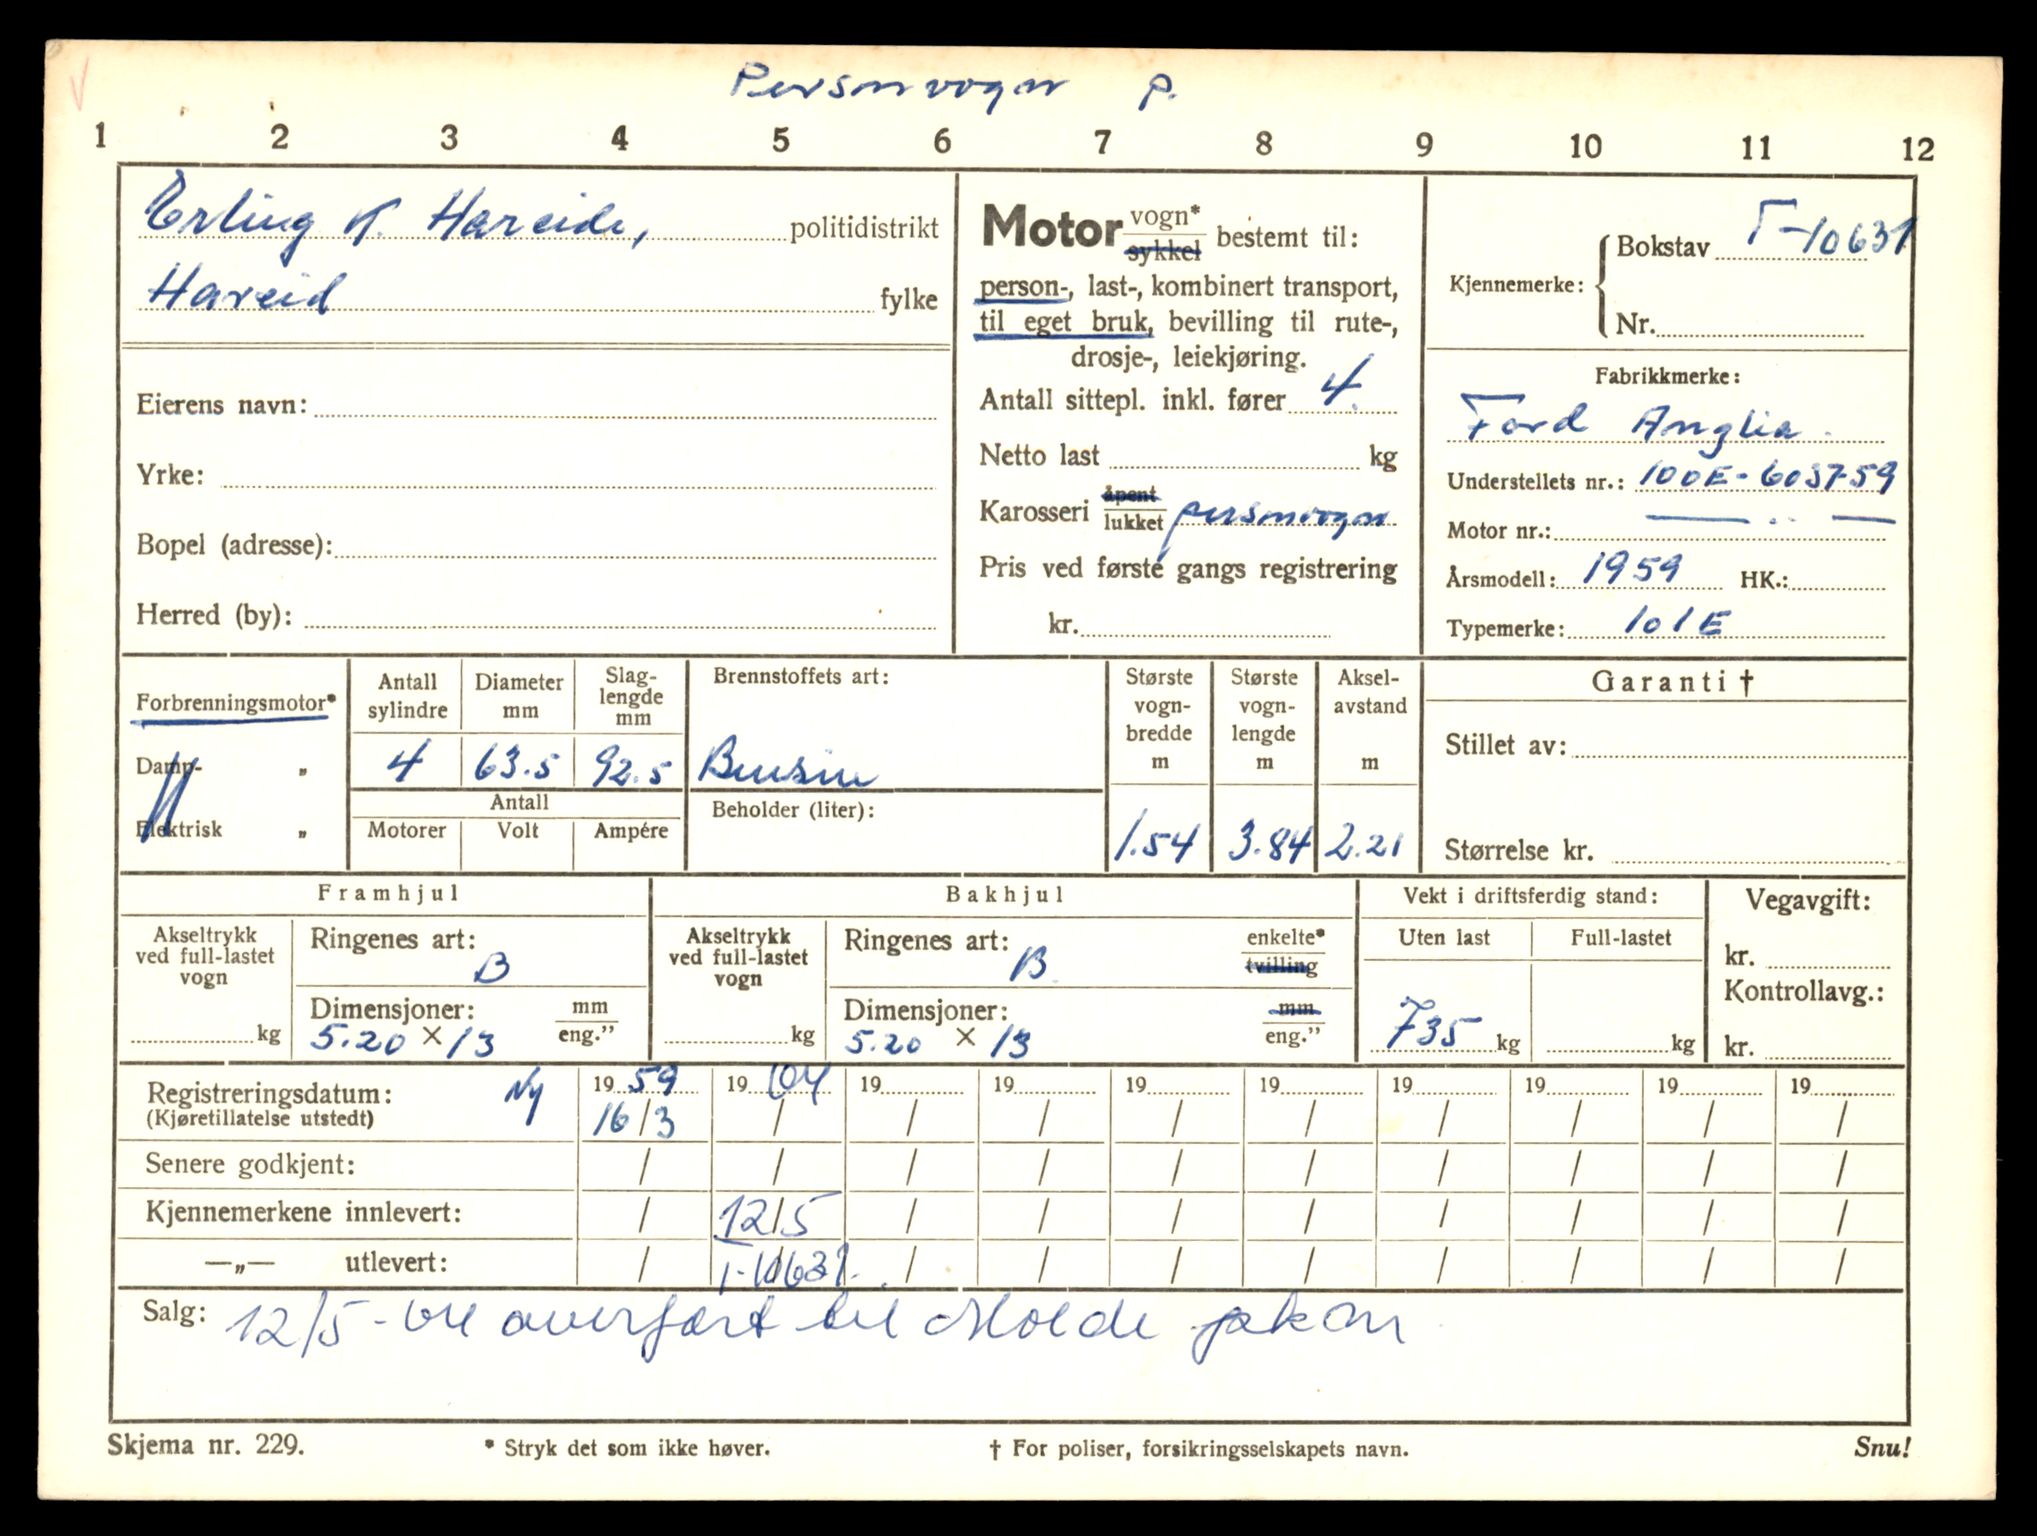 Personvogn P.
1 2 3 4 5 6 7 8 9 10 11 12
Erling K. Hareide, politidistrikt
Hareid fylke
Eierens navn:
Yrke:
Bopel (adresse):
Herred (by):
Motor vogn* / sykkel bestemt til:
person-, last-, kombinert transport,
til eget bruk, bevilling til rute-,
drosje-, leiekjøring.
Antall sittepl. inkl. fører 4.
Netto last kg
Karosseri åpent / lukket personvogn
Pris ved første gangs registrering
kr.
Kjennemerke: Bokstav T-10631
Nr.
Fabrikkmerke:
Ford Anglia.
Understellets nr.: 100E-603759
Motor nr.: — „ —
Årsmodell: 1959 HK.:
Typemerke: 101E
Forbrenningsmotor*
Damp- „
Elektrisk „
Antall sylindre
Diameter mm
Slag-lengde mm
4 63.5 92.5
Antall
Motorer Volt Ampére
Brennstoffets art:
Bensin
Beholder (liter):
Største vogn-bredde m
1.54
Største vogn-lengde m
3.84
Aksel-avstand m
2.21
Garanti †
Stillet av:
Størrelse kr.
Framhjul
Akseltrykk ved full-lastet vogn
kg
Ringenes art:
B
Dimensjoner: mm / eng.”
5.20 × 13
Bakhjul
Akseltrykk ved full-lastet vogn
kg
Ringenes art: enkelte* / tvilling
B
Dimensjoner: mm / eng.”
5.20 × 13
Vekt i driftsferdig stand:
Uten last Full-lastet
735 kg kg
Vegavgift:
kr.
Kontrollavg.:
kr.
Registreringsdatum: Ny 1959 1964 19 19 19 19 19 19 19 19
(Kjøretillatelse utstedt) 16/3 / / / / / / / / /
Senere godkjent: / / / / / / / / / /
Kjennemerkene innlevert: / 12/5 / / / / / / / /
—„— utlevert: / T-10631. / / / / / / / /
Salg: 12/5- overført til Molde
Skjema nr. 229. * Stryk det som ikke høver. † For poliser, forsikringsselskapets navn. Snu!